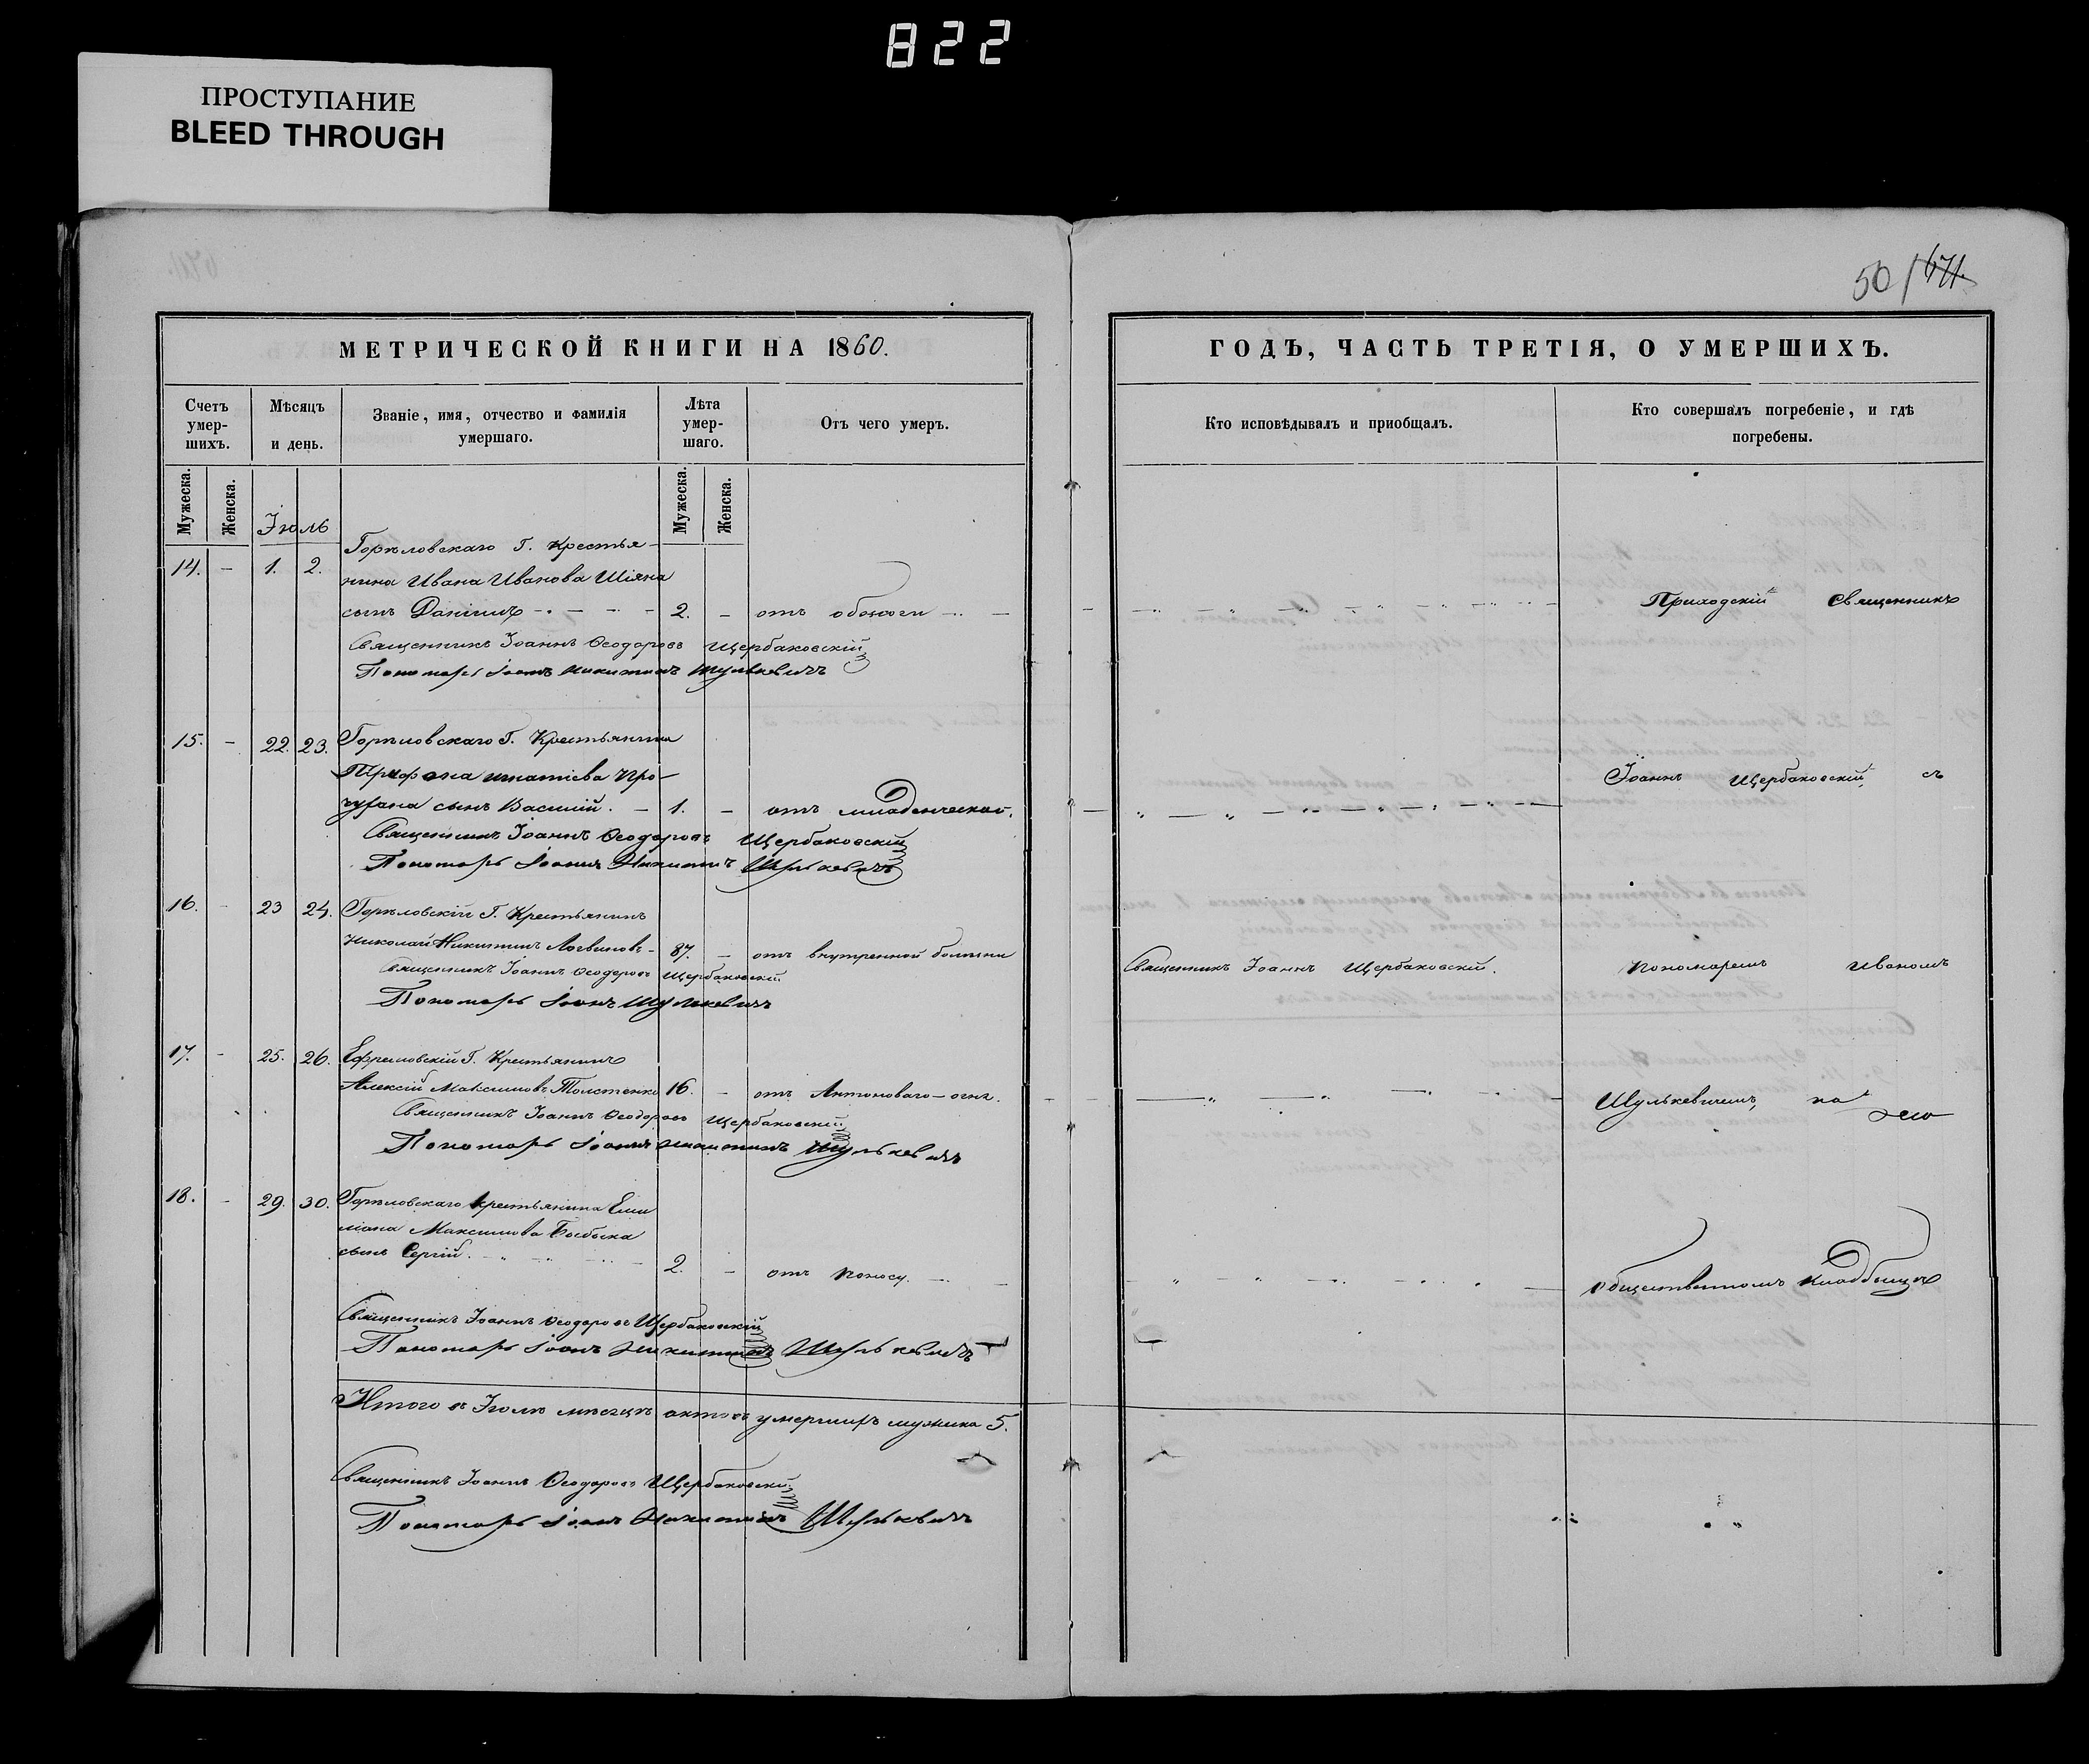 822
ПРОСТУПАНИЕ
BLEED THROUGH
50/671.
МЕТРИЧЕСКОЙ КНИГИ НА 1860.
Счетъ умер-шихъ.
Мѣсяцъ и день.
Званіе, имя, отчество и фамилія умершаго.
Лѣта умер-шаго.
Отъ чего умеръ.
Мужеска.
Женска.
Іюль
Мужеска.
Женска.
14. - 1. 2. Горѣловскаго Г. Крестья-
нина Ивана Иванова Шіяна
сынъ Даніилъ 2. - отъ
Священникъ Іоаннъ Ѳеодоровъ Щербаковскій
Пономарь Іоанъ Никитинъ Шулькевичъ
15. - 22. 23. Горѣловскаго Г. Крестьянина
Трифона Игнатіева
сынъ Василій. - 1. - отъ младенческой.
Священникъ Іоаннъ Ѳеодоровъ Щербаковскій
Пономарь Іоанъ Никитинъ Шулькевичъ
16. - 23 24. Горѣловскій Г. Крестьянинъ
Николай Никитинъ Логвиновъ - 87. - отъ внутренной болѣзни
Священникъ Іоаннъ Ѳеодоровъ Щербаковскій
Пономарь Іоанъ Шулькевичъ
17. - 25. 26. Ефремовскій Г. Крестьянинъ
Алексій Максимовъ Толстенко 16. - отъ Антоноваго-огня.
Священникъ Іоаннъ Ѳеодоровъ Щербаковскій
Пономарь Іоанъ Никитинъ Шулькевичъ
18. - 29. 30. Горѣловскаго крестьянина Еми
ліана Максимова
сынъ Сергій. 2. - отъ поносу.
Священникъ Іоаннъ Ѳеодоровъ Щербаковскій
Пономарь Іоанъ Никитинъ Шулькевичъ
Итого въ Іюлѣ мѣсяцѣ актовъ умершихъ мужска 5.
Священникъ Іоаннъ Ѳеодоровъ Щербаковскій
Пономарь Іоанъ Никитинъ Шулькевичъ
ГОДЪ, ЧАСТЬ ТРЕТІЯ, О УМЕРШИХЪ.
Кто исповѣдывалъ и пріобщалъ.
Кто совершалъ погребеніе, и гдѣ
погребены.
Приходскій Священникъ
Іоаннъ Щербаковскій, съ
Священникъ Іоаннъ Щербаковскій.
пономаремъ Иваномъ
Шулькевичемъ, на
общественномъ кладбищѣ